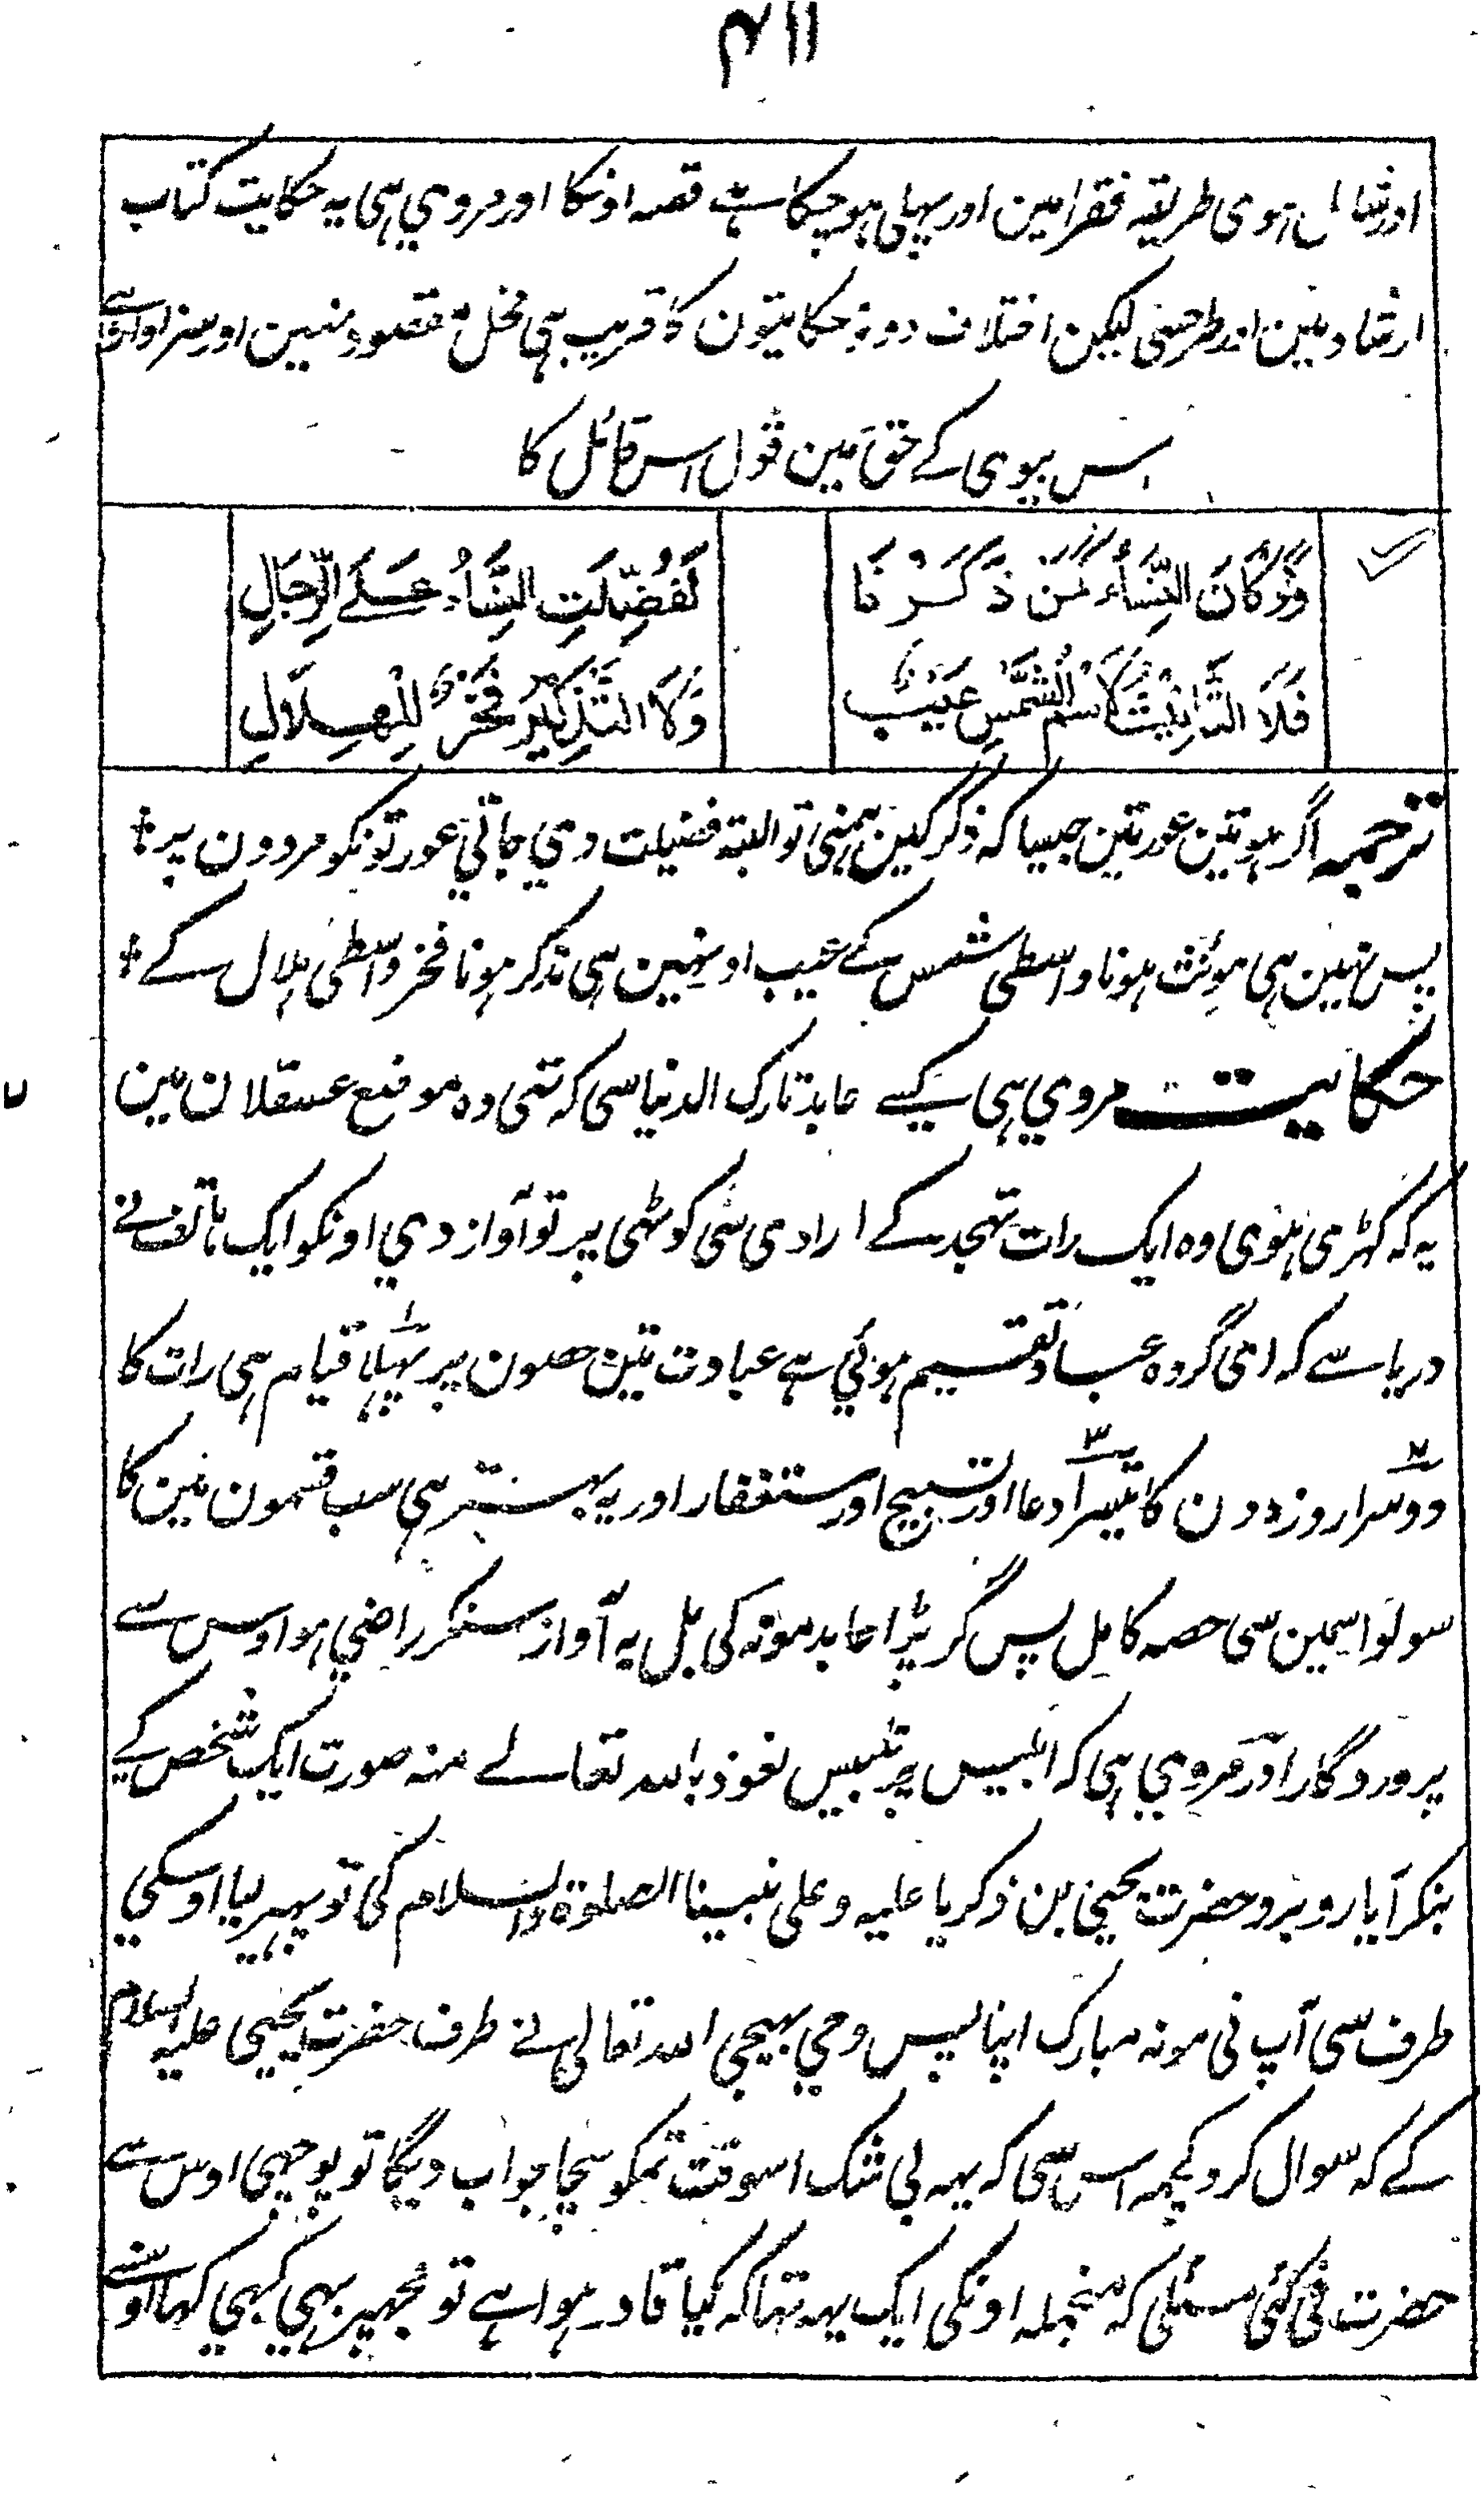 ۴۱۱
اور شامل ہوی طریقہ فقرا مین اور پہلی ہو چکا ہے قصہ اونکا اور مروي ہی یہ حکایت کتاب
ارشاد مین اور طرحسی لیکن اختلاف دونو حکایتون کا قریب ہی مخل مقصود نہین اور سزاوار ہے
اس بیوی کے حق مین قول اس قائل کا
وَلَوْ كَانَ النِّسَاءُ كَمَنْ ذَكَرْنَا
لَفُضِّلَتِ النِّسَاءُ عَلَے الرِّجَالِ
فَلَا التَّانِيثُ لِاسْمِ الشَّمْسِ عَيْبٌ
وَلَا التَّذْكِيرُ فَخْرٌ لِلْهِلَالِ
ترجمہ اگر ہوتین عورتین جیسا کہ ذکر کین ہمنی تو البتہ فضیلت دي جاتي عورتونکو مردون پر
پس نہین ہی مونث ہونا واسطی شمس کے عیب اور نہین ہی مذکر ہونا فخر واسطی ہلال کے
حکایت مروي ہی کسے عابد تارک الدنیا سی کہ تہی وہ موضع عسقلان مین
یہ کہ کہڑی ہوی وہ ایک رات تہجد کے ارادی سی کوٹہی پر تو آواز دي اونکو ایک ہاتف نے
دریا سے کہ ای گروہ عباد تقسیم ہوئي ہے عبادت تین حصون پر پہلا قیام ہی رات کا
دوسرا روزہ دن کا تیسرا دعا اور تسبیح اور استغفار اور یہ بہتر ہی سب قسمون مین کا
سو لو اسمین سی حصہ کامل پس گر پڑا عابد مونہ کی بل یہ آواز سنکر راضي ہوا اوس سے
پروردگار اور مروي ہی کہ ابلیس پر تلبیس نعوذ باللہ تعالے منہ صورت ایک شخص کے
بنکر آیا روبرو حضرت یحییٰ بن ذکریا علیہ و علی نبینا الصلوۃ والسلام کی تو پہیر لیا اوسکي
طرف سی آپ نی مونہ مبارک اپنا پس وحي بہیجی اللہ تعالی نے طرف حضرت یحییٰ علیہ السلام
کے کہ سوال کرو کچہ اس سی کہ یہہ بی شک اسوقت تمکو سچا جواب دیگا تو پوچہی اوس سے
حضرت نی کئی مسئلی کہ منجملہ اونکی ایک یہہ تہا کہ کیا قادر ہوا ہے تو مجہپر بہي کبہي کہا اوسنے